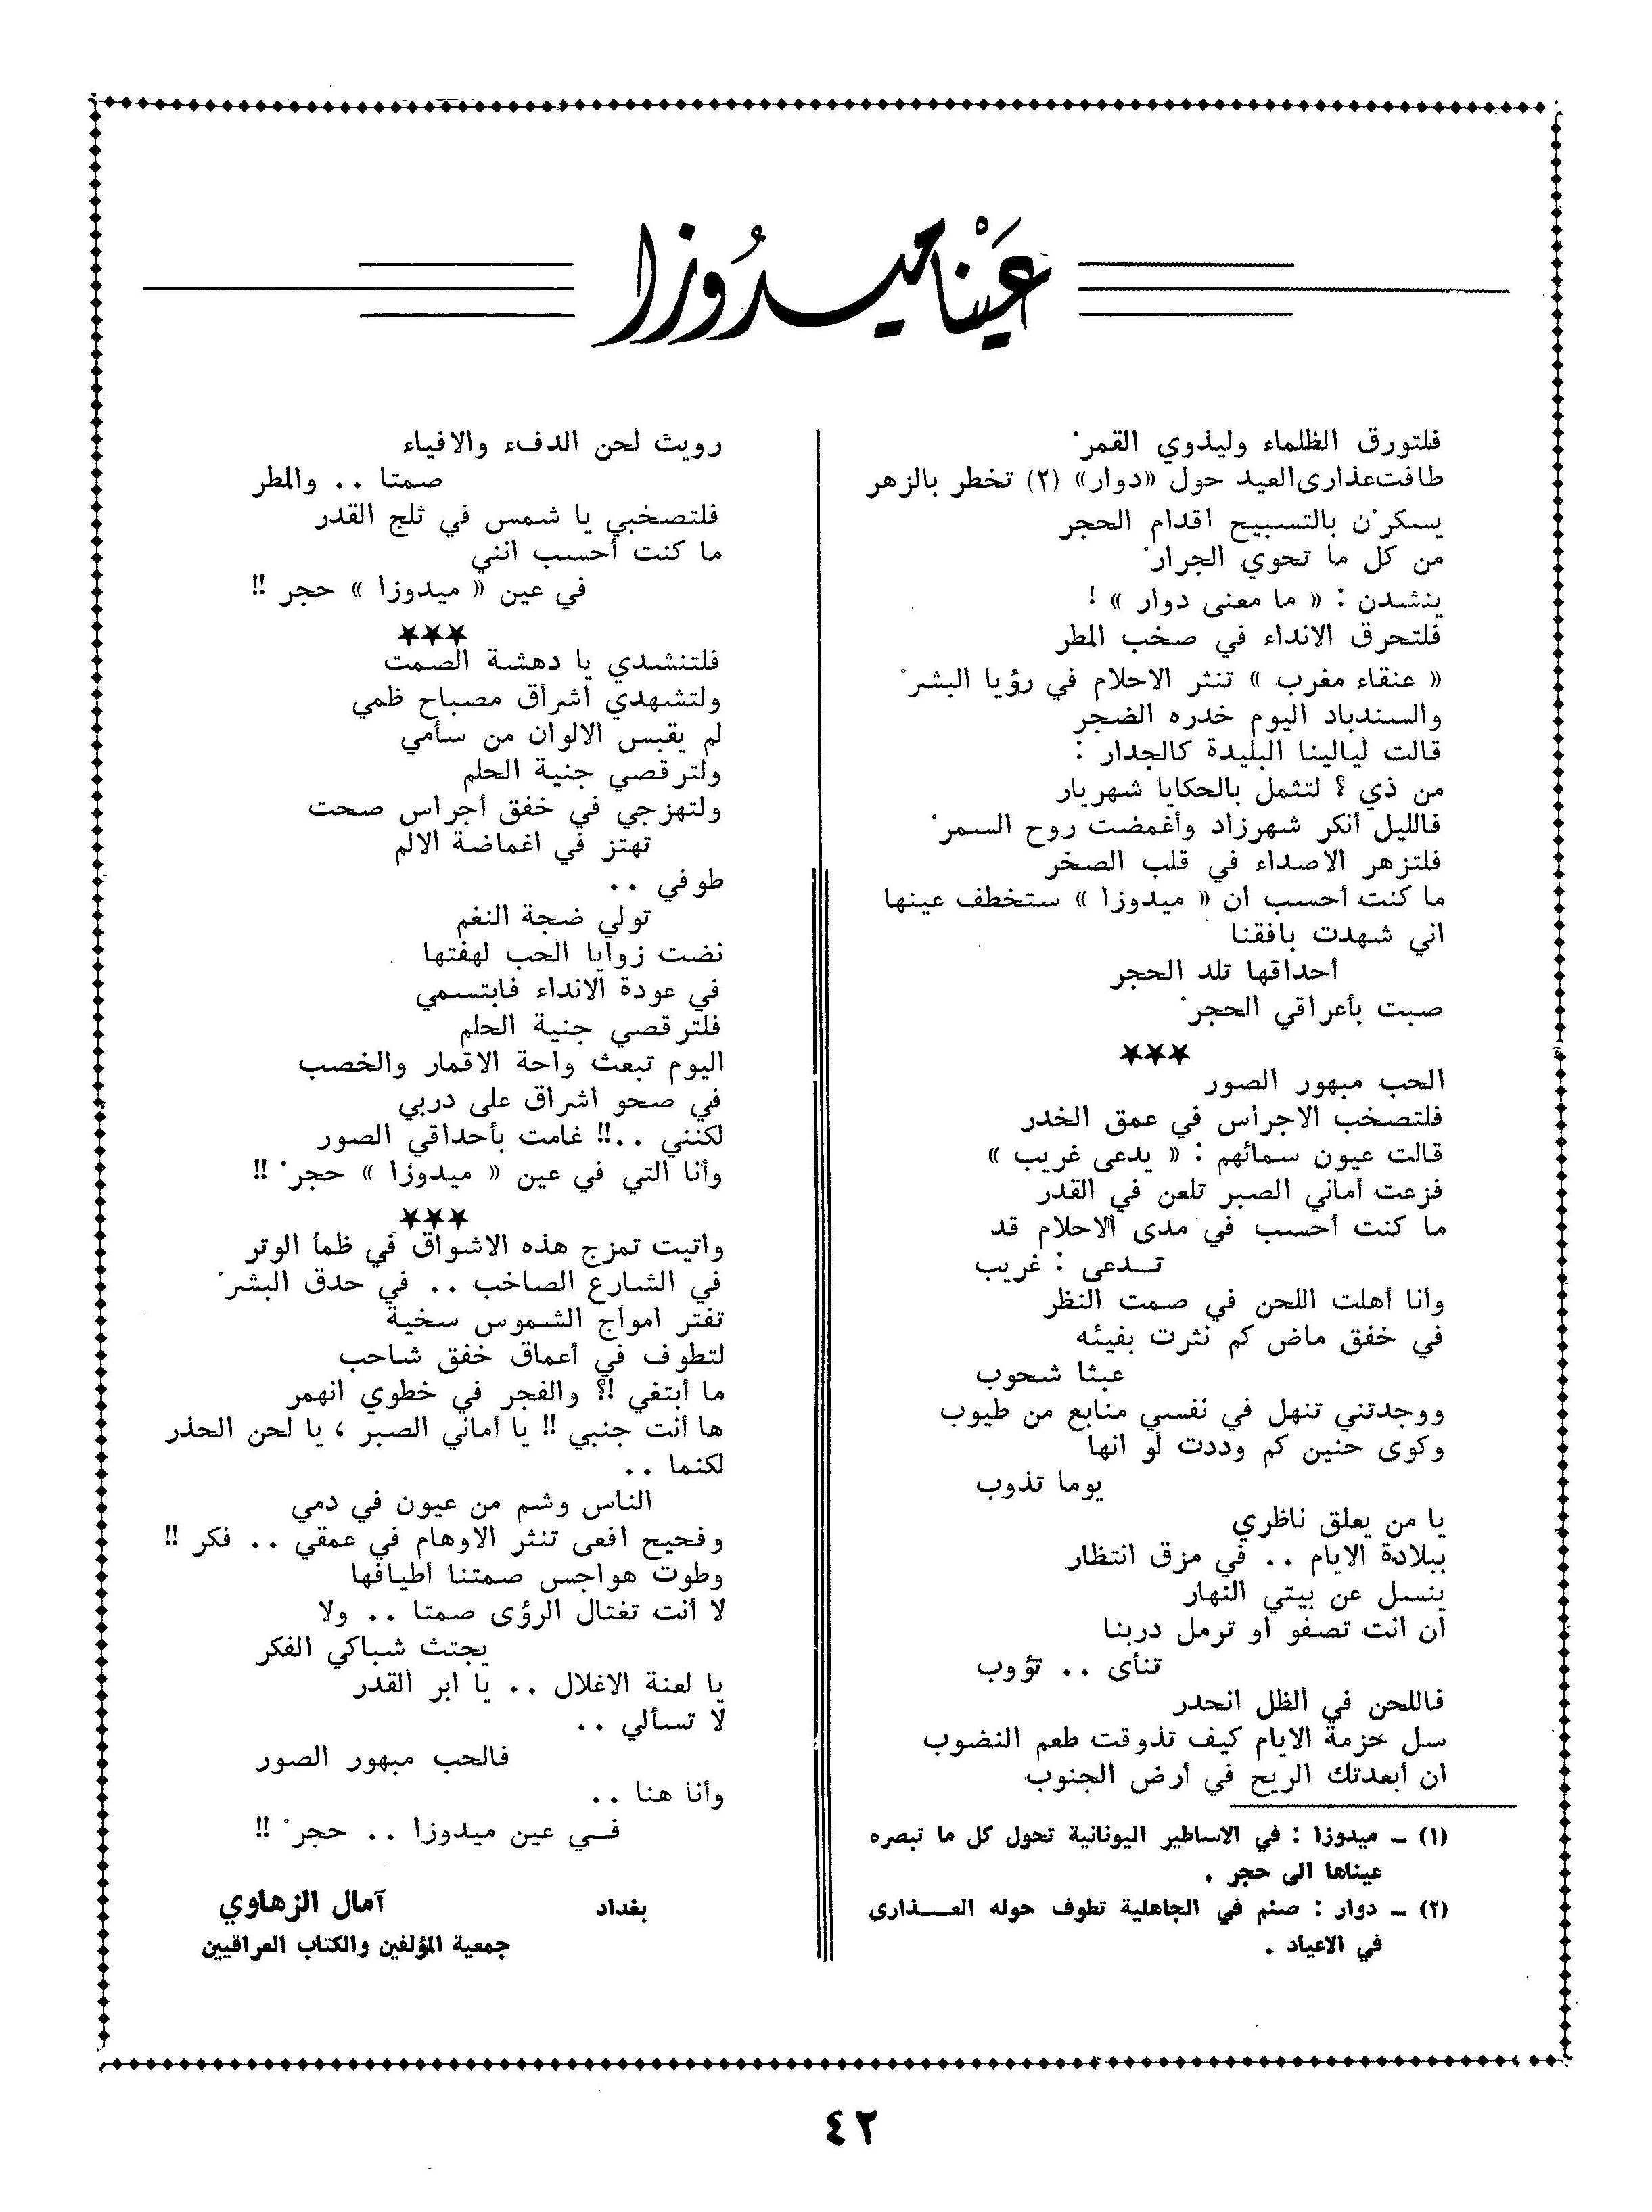 عَيْنا ميدُوزا
فلتورق الظلماء وليذوي القمرْ
طافت عذارى العيد حول «دوار» (٢) تخطر بالزهر
يسكرْن بالتسبيح أقدام الحجر
من كل ما تحوي الجرارْ
ينشدن : « ما معنى دوار » !
فلتحرق الانداء في صخب المطر
« عنقاء مغرب » تنثر الاحلام في رؤيا البشرْ
والسندباد اليوم خدره الضجر
قالت ليالينا البليدة كالجدار :
من ذي ؟ لتثمل بالحكايا شهريار
فالليل أنكر شهرزاد وأغمضت روح السمرْ
فلتزهر الاصداء في قلب الصخر
ما كنت أحسب ان « ميدوزا » ستخطف عينها
اني شهدت بافقنا
أحداقها تلد الحجر
صبت بأعراقي الحجرْ
★★★
الحب مبهور الصور
فلتصخب الاجراس في عمق الخدر
قالت عيون سمائهم : « يدعى غريب »
فزعت أماني الصبر تلعن في القدر
ما كنت أحسب في مدى الاحلام قد
تـــدعى : غريب
وأنا أهلت اللحن في صمت النظر
في خفق ماض كم نثرت بفيئه
عبثا شحوب
ووجدتني تنهل في نفسي منابع من طيوب
وكوى حنين كم وددت لو انها
يوما تذوب
يا من يعلق ناظري
ببلادة الايام .. في مزق انتظار
ينسل عن بيتي النهار
ان أنت تصفو او ترمل دربنا
تنأى .. تؤوب
فاللحن في الظل انحدر
سل حزمة الايام كيف تذوقت طعم النضوب
ان أبعدتك الريح في أرض الجنوب
(١) ـ ميدوزا : في الاساطير اليونانية تحول كل ما تبصره
عيناها الى حجر .
(٢) ـ دوار : صنم في الجاهلية تطوف حوله العــــذارى
في الاعياد .
رويت لحن الدفء والافياء
صمتا .. والمطر
فلتصخبي يا شمس في ثلج القدر
ما كنت أحسب انني
في عين « ميدوزا » حجر !!
★★★
فلتنشدي يا دهشة الصمت
ولتشهدي اشراق مصباح ظمي
لم يقبس الالوان من سأمي
ولترقصي جنية الحلم
ولتهزجي في خفق أجراس صحت
تهتز في اغماضة الالم
طوفي ..
تولي ضجة النغم
نضت زوايا الحب لهفتها
في عودة الانداء فابتسمي
فلترقصي جنية الحلم
اليوم تبعث واحة الاقمار والخصب
في صحو اشراق على دربي
لكنني ..!! غامت بأحداقي الصور
وأنا التي في عين « ميدوزا » حجرْ !!
★★★
واتيت تمزج هذه الاشواق في ظمأ الوتر
في الشارع الصاخب .. في حدق البشرْ
تفتر امواج الشموس سخية
لتطوف في أعماق خفق شاحب
ما أبتغي !؟ والفجر في خطوي انهمر
ها أنت جنبي !! يا أماني الصبر ، يا لحن الحذر
لكنما ..
الناس وشم من عيون في دمي
وفحيح افعى تنثر الاوهام في عمقي .. فكر !!
وطوت هواجس صمتنا أطيافها
لا أنت تغتال الرؤى صمتا .. ولا
يجتث شباكي الفكر
يا لعنة الاغلال .. يا ابر القدر
لا تسألي ..
فالحب مبهور الصور
وأنا هنا ..
فـــي عين ميدوزا .. حجرْ !!
بغداد
آمال الزهاوي
جمعية المؤلفين والكتاب العراقيين
٤٢